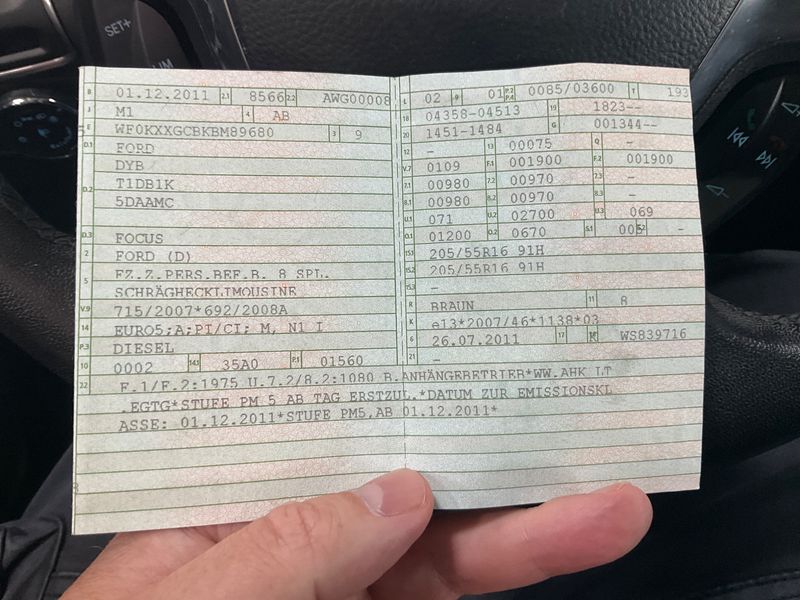 SET+
B 01.12.2011 2.1 8566 2.2 AWG00008
J M1 4 AB
E WF0KXXGCBKBM89680 3 9
D.1 FORD
DYB
D.2 T1DB1K
5DAAMC
D.3 FOCUS
2 FORD (D)
5 FZ.Z.PERS.BEF.B. 8 SPL.
SCHRÄGHECKLIMOUSINE
V.9 715/2007*692/2008A
14 EURO5;A;PI/CI; M, N1 I
P.3 DIESEL
10 0002 14.1 35A0 P.1 01560
L 02 9 01 P.2 P.4 0085/03600 T 193
18 04358-04513 19 1823--
20 1451-1484 G 001344--
12 - 13 00075 Q -
V.7 0109 F.1 001900 F.2 001900
7.1 00980 7.2 00970 7.3 -
8.1 00980 8.2 00970 8.3 -
U.1 071 U.2 02700 U.3 069
O.1 01200 O.2 0670 S.1 005 S.2 -
15.1 205/55R16 91H
15.2 205/55R16 91H
15.3 -
R BRAUN 11 8
K e13*2007/46*1138*03
6 26.07.2011 17 K 16 WS839716
21 -
22 F.1/F.2:1975 U.7.2/8.2:1080 B.ANHÄNGEBETRIEB*WW.AHK LT
.EGTG*STUFE PM 5 AB TAG ERSTZUL.*DATUM ZUR EMISSIONSKL
ASSE: 01.12.2011*STUFE PM5,AB 01.12.2011*